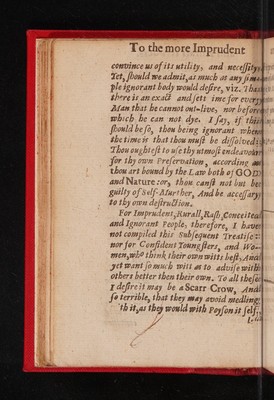 To the more Imprudent
convince us of its utility, and necessity
Yet, should we admit, as much as any sim
ple ignorant body would desire, viz. That
there is an exact and set time for every
Man that he cannot out-live, nor before
which he can not dye. I say, if this
should be so, thou being ignorant when
the time is that thou must be dissolved:
Thou oughtest to use thy utmost endeavour
for thy own Preservation, according as
thou art bound by the Law both of GOD
and Nature: or, thou canst not but be
guilty of Self-Murther, And be accessary
to thy own destruction.
For Imprudent, Rurall, Rash, Conceited
and Ignorant People, therefore, I have
not compiled this subsequent Treatise:
nor for Confident Youngsters, and Wo-
men, who think their own witts best, And
yet want so much witt as to advise with
others better then their own. To all these
I desire it may be a Scarr Crow, And
so terrible, that they may avoid medling
th it, as they would with Poyson it self,